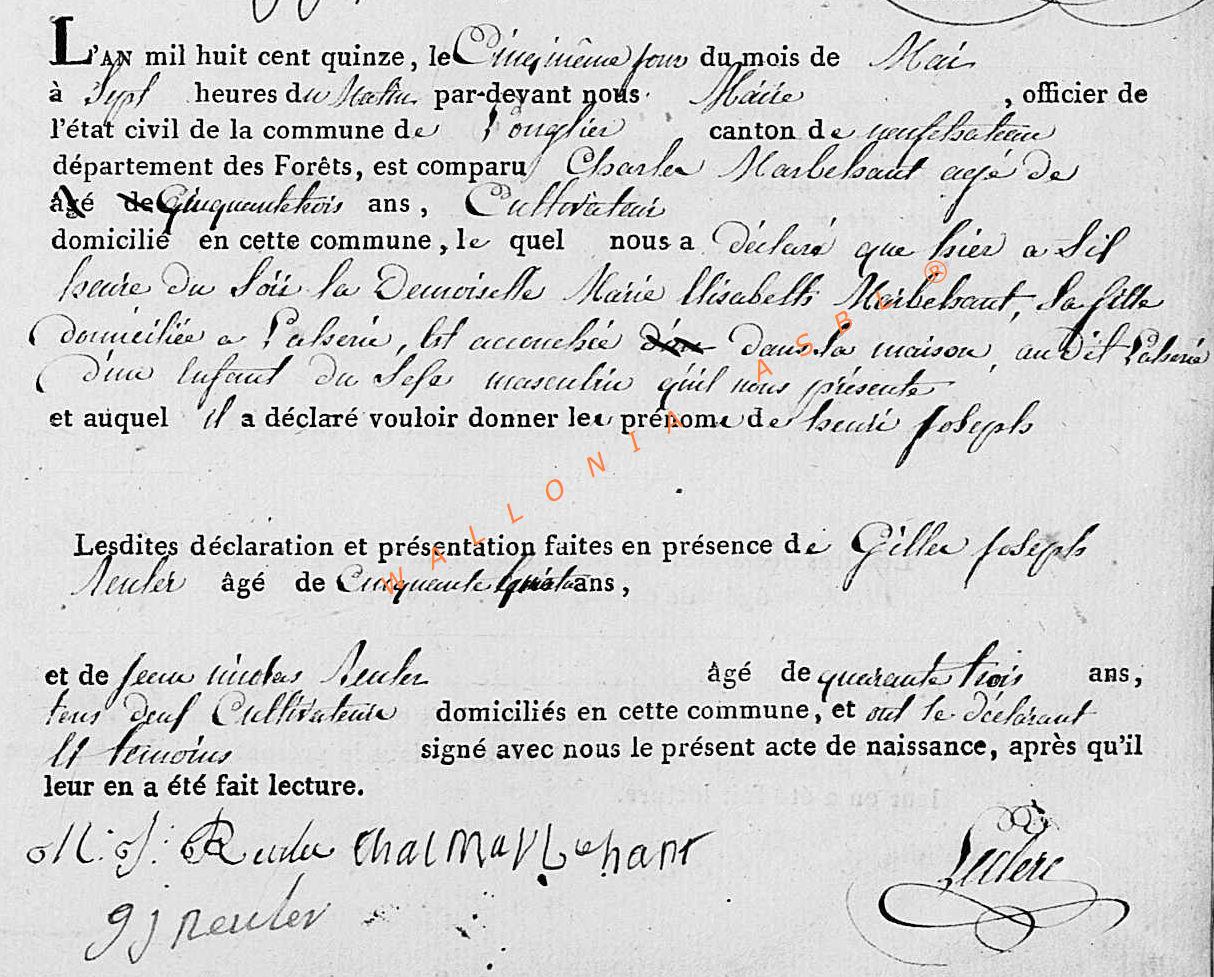 L'AN mil huit cent quinze, le Cinquième jour du mois de Mai
à Sept heures du Matin par-devant nous Maire , officier de
l'état civil de la commune de Longlier canton de neufchateau
département des Forêts, est comparu Charles Marbehant agé de
âgé de Cinquantetrois ans, Cultivateur
domicilié en cette commune, le quel nous a déclaré que hier a Six
heure du Soir la Demoiselle Marie Elisabeth Marbehant, Sa fille
domiciliée a , Est accouchée dans Sa maison, au Dit
d'un Enfant du Sexe masculin qu'il nous présente
et auquel il a déclaré vouloir donner les prénoms de henri joseph
Lesdites déclaration et présentation faites en présence de Gilles joseph
Reuler âgé de Cinquante ans,
et de jean nicolas Reuler âgé de quarante trois ans,
tous deux Cultivateurs domiciliés en cette commune, et ont le déclarant
Et temoins signé avec nous le présent acte de naissance, après qu'il
leur en a été fait lecture.
N: j: Reuler Chal Marbehant
Leclere
g j reuler
WALLONIA ASBL ®